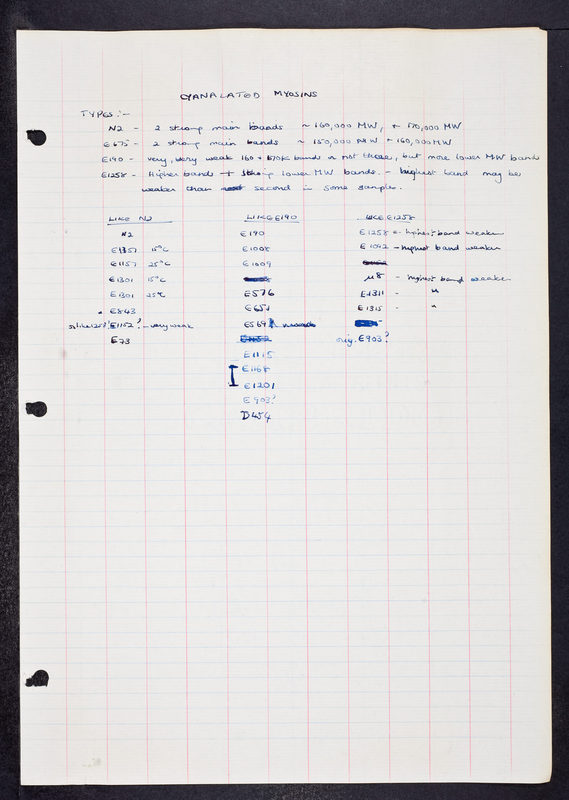 CYANALATED MYOSINS
TYPES:-
N2 - 2 strong main bands ~ 160,000 MW, + 170,000 MW
E675 - 2 strong main bands ~ 150,000 MW + 160,000 MW
E190 - very, very weak 160 + 170K bands or not there, but more lower MW bands
E1258 - Higher bands + strong lower MW bands. - highest band may be
weaker than second in some samples.
LIKE N2 LIKE E190 LIKE E1258
N2 E190 E1258 - highest band weaker
E1357 15°C E1008 E1092 - highest band weaker
E1157 25°C E1009
E1301 15°C µ8 - highest band weaker
E1301 25°C E576 E1311 - "
E843 E651 E1315 - "
or like 1258? E1152? - very weak E569
E73 orig. E903?
E1115
E1168
E1201
E903?
D454